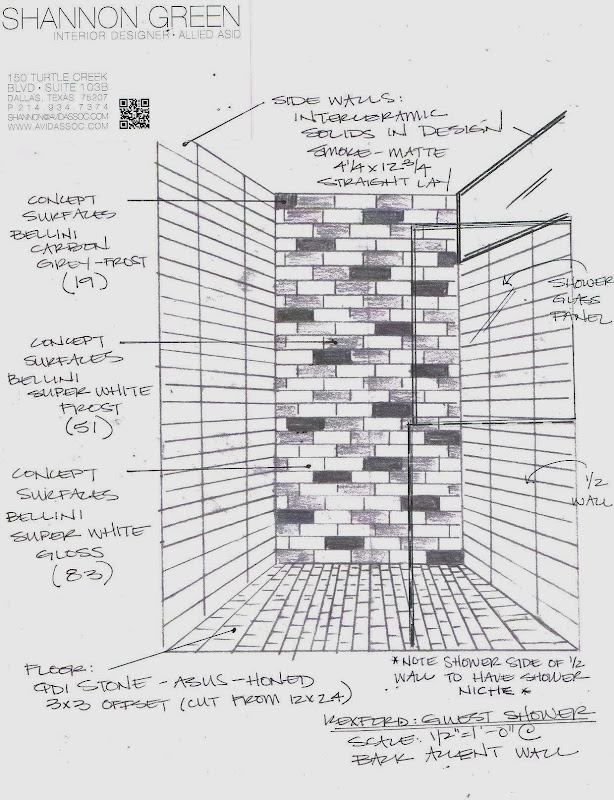 SHANNON GREEN
INTERIOR DESIGNER · ALLIED ASID
150 TURTLE CREEK
BLVD · SUITE 103B
DALLAS, TEXAS 75207
P 214 934 7374
SHANNON@AVIDASSOC.COM
WWW.AVIDASSOC.COM
SIDE WALLS:
INTERCERAMIC
SOLIDS IN DESIGN
SMOKE-MATTE
4 1/4 X 12 3/4
STRAIGHT LAY
CONCEPT
SURFACES
BELLINI
CARBON
GREY-FROST
(19)
SHOWER
GLASS
PANEL
CONCEPT
SURFACES
BELLINI
SUPER WHITE
FROST
(51)
CONCEPT
SURFACES
BELLINI
SUPER WHITE
GLOSS
(83)
1/2
WALL
FLOOR:
QDI STONE - ASUS - HONED
3X3 OFFSET (CUT FROM 12X24)
*NOTE SHOWER SIDE OF 1/2
WALL TO HAVE SHOWER
NICHE *
REXFORD: GUEST SHOWER
SCALE: 1/2"=1'-0" @
BACK ACCENT WALL